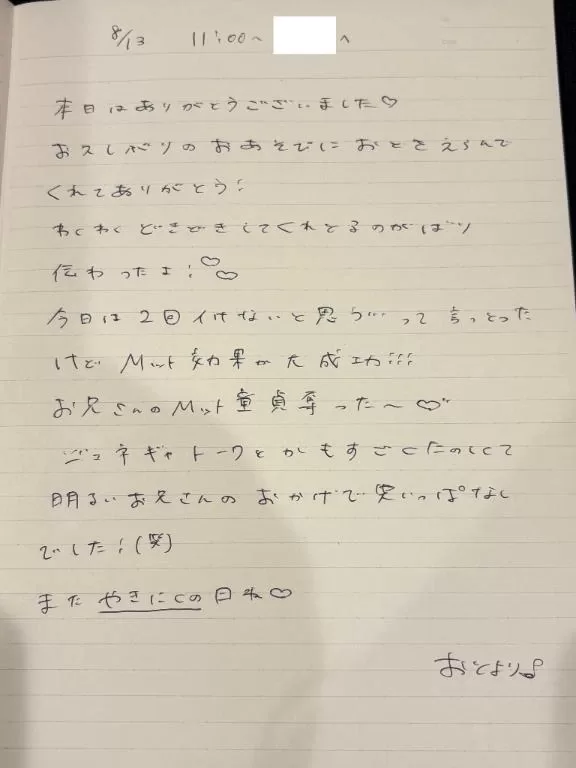 8/13 11:00〜 へ
本日はありがとうございました♡
お久しぶりのおあそびに おとをえらんで
くれてありがとう!
わくわく どきどきしてくれとるのがばり
伝わったよ!♡♡
今日は2回イけないと思う…って言っとった
けど Mット効果が大成功!!!
お兄さんのMット童貞奪った〜♡
ジェネギャトークとかもすごくたのしくて
明るいお兄さんの おかげで笑いっぱなし
でした!(笑)
また やきにくの日ね♡
おとより♪